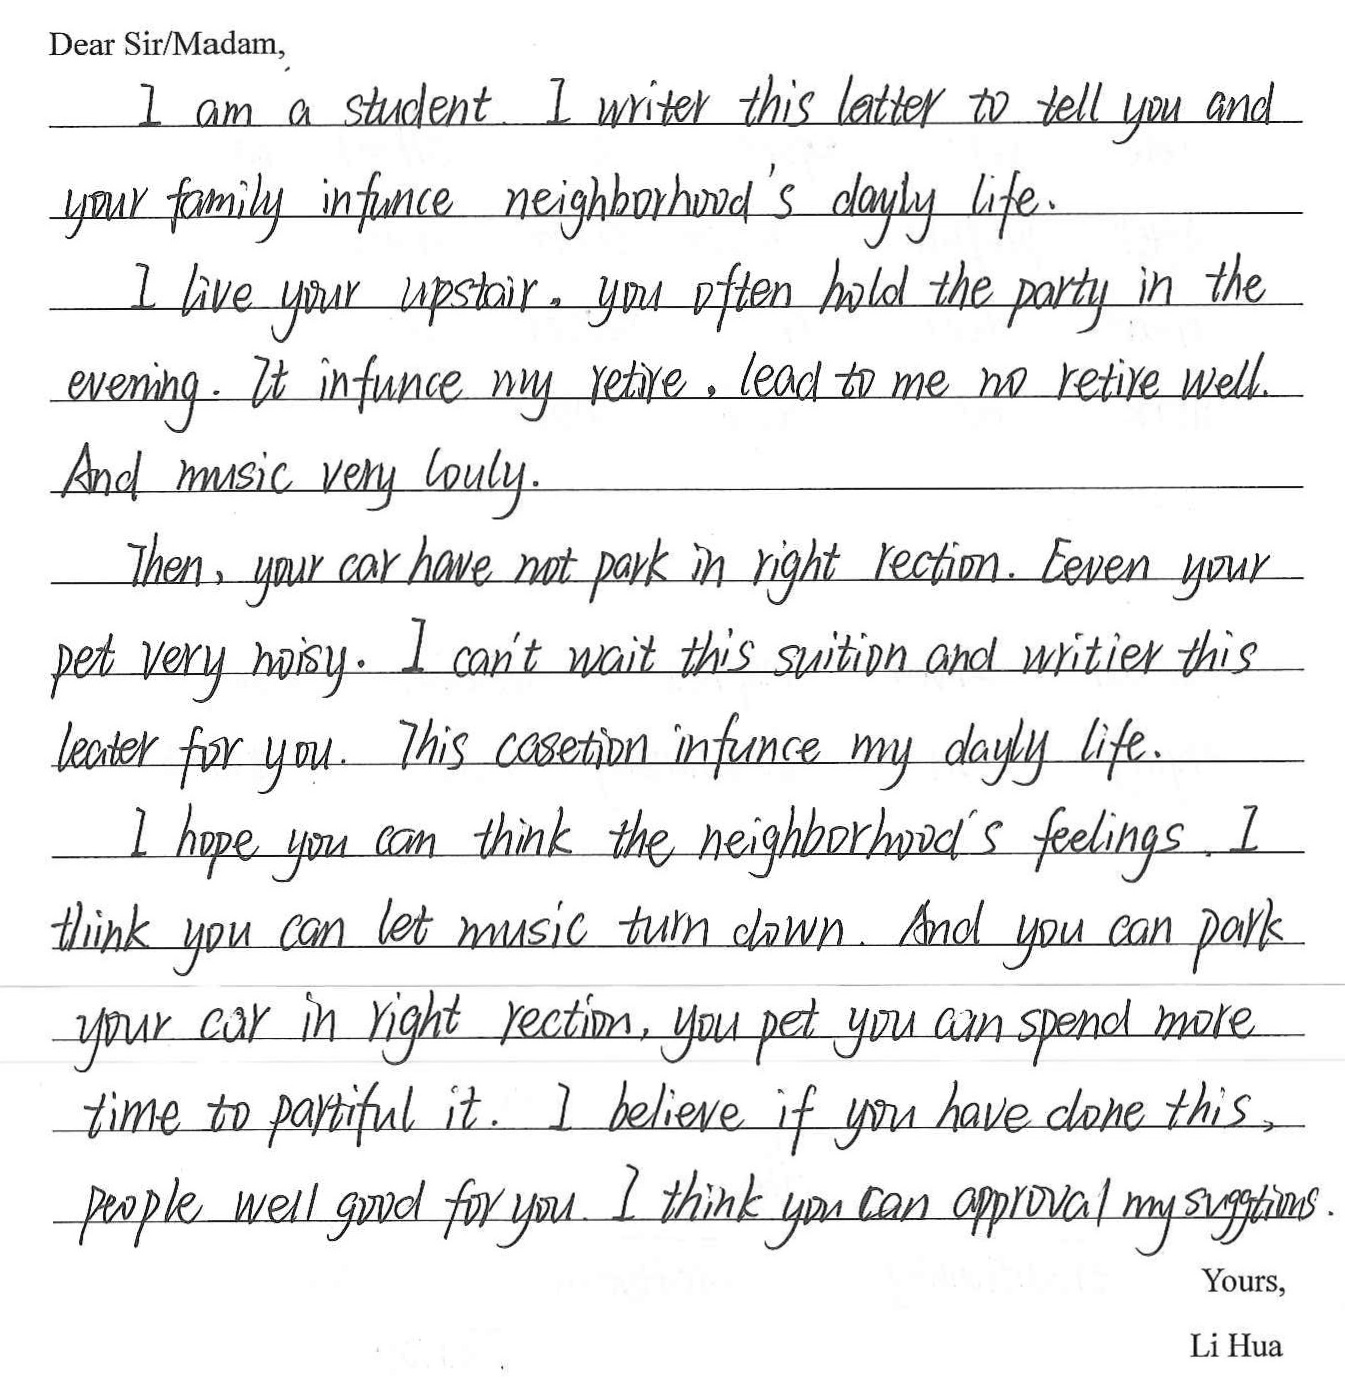 Dear Sir/Madam,
I am a student. I writer this latter to tell you and
your family infunce neighborhood's dayly life.
I live your upstair, you often hold the party in the
evening. It infunce my retire, lead to me no retire well.
And music very louly.
Then, your car have not park in right rection. Eeven your
pet very noisy. I can't wait this suition and writier this
leater for you. This casetion infunce my dayly life.
I hope you can think the neighborhood's feelings. I
think you can let music turn down. And you can park
your car in right rection, you pet you can spend more
time to partiful it. I believe if you have done this,
people well good for you. I think you can approval my suggtions.
Yours,
Li Hua